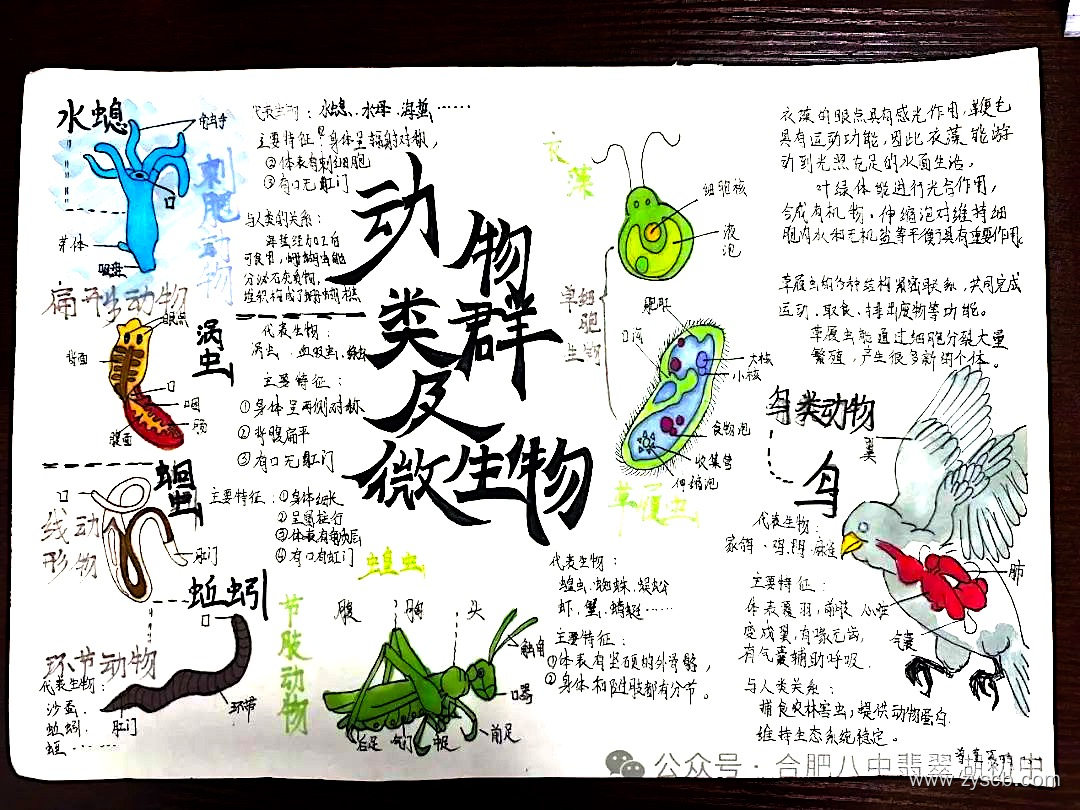 水螅
触手
口
芽体
刺胞动物
代表生物：水螅、水母、海蜇……
主要特征：①身体呈辐射对称，
②体表有刺细胞
③有口无肛门
与人类的关系：
海蜇经加工后
可食用，珊瑚虫能
分泌石灰质物，
堆积构成了珊瑚礁
扁形动物
涡虫
眼点
背面
口
咽
肠
腹面
代表生物：
涡虫、血吸虫、
主要特征：
①身体呈两侧对称
②背腹扁平
③有口无肛门
线形动物
蛔虫
口
肛门
主要特征：①身体细长
②呈圆柱形
③体表有角质层
④有口有肛门
环节动物
蚯蚓
口
环节
肛门
代表生物：
沙蚕、
蚯蚓、
蛭……
动物
类群
及
微生物
节肢动物
蝗虫
腹
胸
头
触角
口器
前足
中足
气门
后足
代表生物：
蝗虫、蜘蛛、蜈蚣
虾、蟹、蜻蜓……
主要特征：
①体表有坚硬的外骨骼，
②身体和附肢都有分节。
单细胞生物
衣藻
细胞核
液泡
草履虫
口沟
大核
小核
食物泡
收集管
伸缩泡
衣藻的眼点具有感光作用，鞭毛
具有运动功能，因此衣藻能游
动到光照充足的水面生活。
叶绿体能进行光合作用，
合成有机物，伸缩泡对维持细
胞内水和无机盐等平衡具有重要作用。
草履虫的各种结构紧密联系，共同完成
运动、取食、排出废物等功能。
草履虫能通过细胞分裂大量
繁殖，产生很多新的个体。
鸟类动物
鸟
翼
肺
气囊
代表生物：
家鸽、鸡、
主要特征：
体表覆羽，前肢
变成翼，有喙无齿，
有气囊辅助呼吸，
与人类关系：
捕食农林害虫，提供动物蛋白，
维持生态系统稳定。
公众号·合肥八中翡翠湖初中
www.zyscb.com